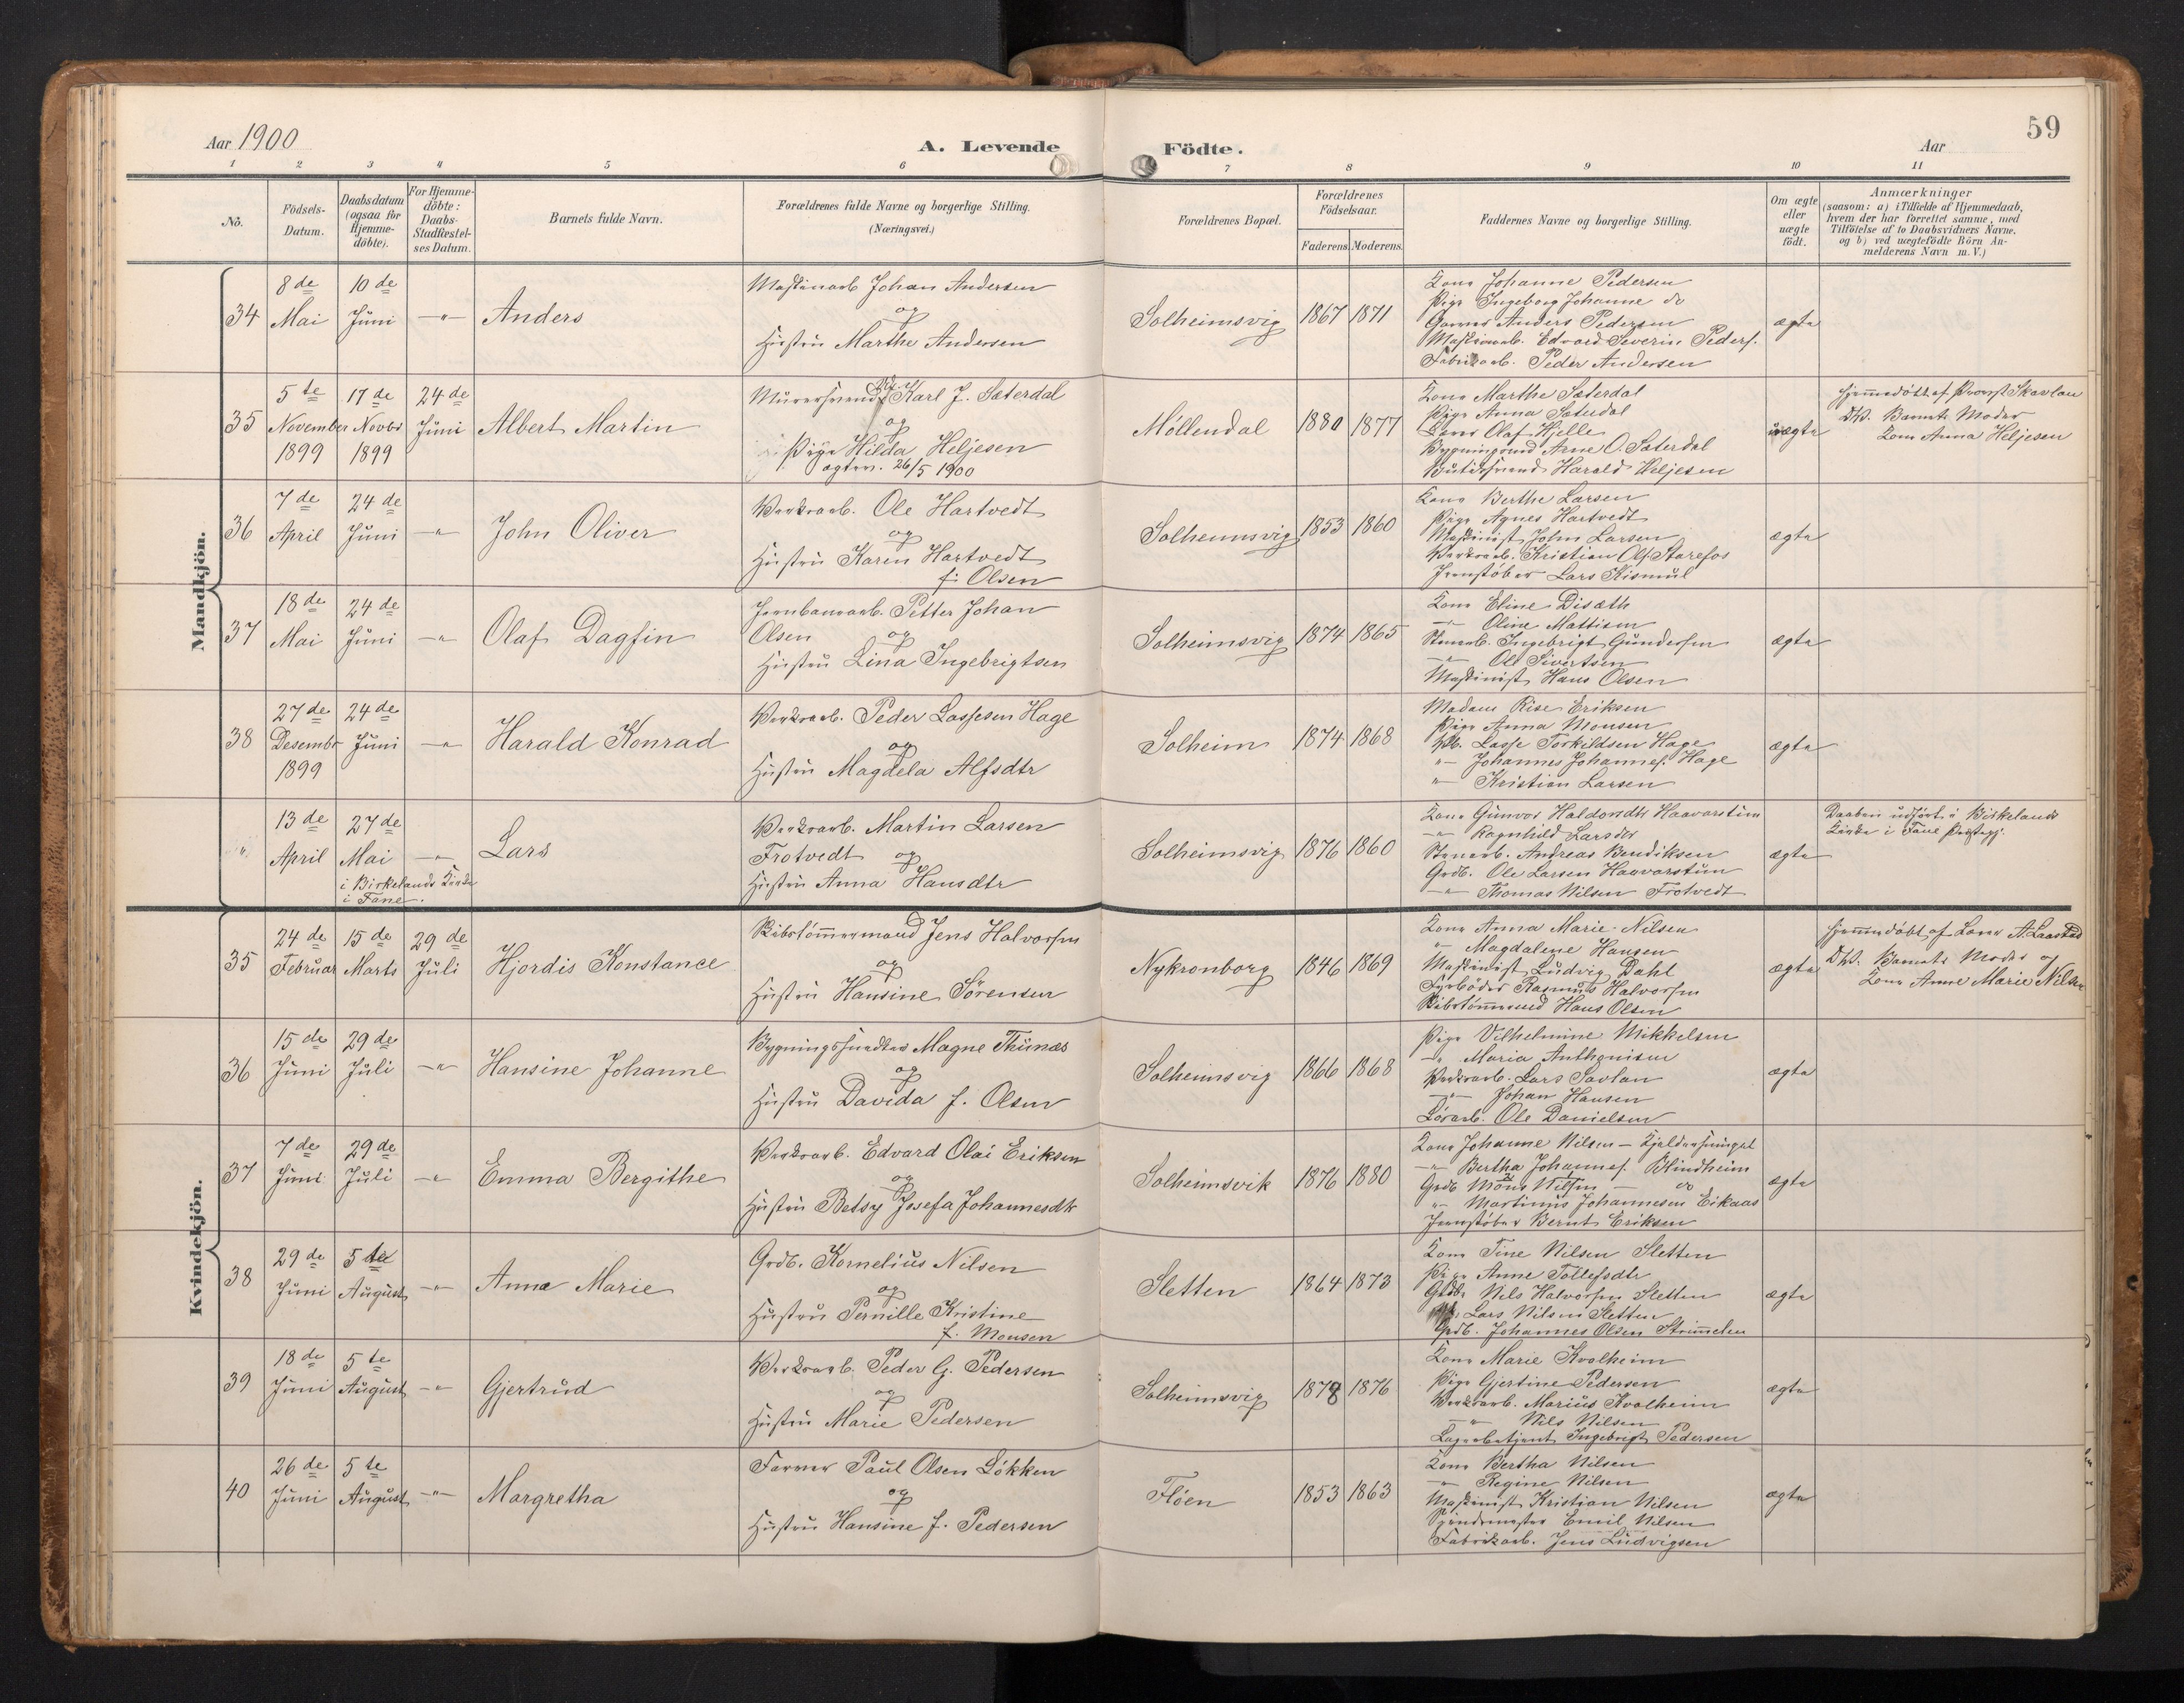 59
Aar 1900
A. Levende Födte.
Aar
1 2 3 4 5 6 7 8 9 10 11
No.
Födsels-
Datum.
Daabsdatum
(ogsaa för
Hjemme-
döbte).
For Hjemme-
döbte:
Daabs-
Stadfæstel-
ses Datum.
Barnets fulde Navn.
Forældrenes fulde Navne og borgerlige Stilling.
(Næringsvei.)
Forældrenes Bopæl.
Forældrenes
Födselsaar.
Faderens. Moderens.
Faddernes Navne og borgerlige Stilling.
Om ægte
eller
uægte
födt.
Anmærkninger
(saasom: a) i Tilfælde af Hjemmedaab,
hvem der har forrettet samme, med
Tilföielse af to Daabsvidners Navne.
og b) ved uægtefödte Börn An-
melderens Navn m.V.)
Mandkjön.
34
8de
Mai
10de
Juni
-"-
Anders
Maskinarb Johan Andersen
og
Hustru Marthe Andersen
Solheimsvig
1867 1871
Kone Johanne Pedersen
Pige Ingeborg Johanne do
Anders Pedersen
Maskinarb. Edvard Severin Peders.
Fabrikarb. Peder Andersen
ægte
35
5te
November
1899
17de
Novbr
1899
24de
Juni
Albert Martin
Murersvend Karl J. Sæterdal
og
Pige Hilda Heljesen
ægtev. 26/5 1900
Møllendal
1880 1877
Kone Marthe Sæterdal
Pige Anna Sæterdal
Kone Olaf Hjelle
Bygningssnd Arne O. Sæterdal
Butiksvend Harald Heljesen
uægte
Hjemmedøbt af Provst Skavlan
DW. Barnets Moder
Kone Anna Heljesen
36
7de
April
24de
Juni
-"-
John Oliver
Værksarb. Ole Hartvedt
og
Hustru Karen Hartvedt
f. Olsen
Solheimsvig
1853 1860
Kone Berthe Larsen
Pige Agnes Hartvedt
Maskinist John Larsen
Værksarb. Kristian Ols Storefos
Jernstøber Lars Kismul
ægte
37
18de
Mai
24de
Juni
-"-
Olaf Dagfin
Jernbanearb. Petter Johan
Olsen og
Hustru Lina Ingebrigtsen
Solheimsvig
1874 1865
Kone Eline Disæth
-"- Oline Mattisen
Stenarb. Ingebrigt Gundersen
-"- Ole Sivertsen
Maskinist Hans Olsen
ægte
38
27de
Desembr
1899
24de
Juni
-"-
Harald Konrad
Værksarb. Peder Lassesen Hage
og
Hustru Magdela Alfsdtr
Solheim
1874 1868
Madam Rise Eriksen
Pige Anna Monsen
Lasse Torkildsen Hage
"- Johannes Johannes. Hage
"- Kristian Larsen
ægte
"
13de
April
27de
Mai
i Birkelands Kirke
i Fane.
-"-
Lars
Værksarb. Martin Larsen
Frotvedt og
Hustru Anna Hansdtr
Solheimsvig
1876 1860
Kone Gunvor Haldorsdtr Haavarstun
-"- Ragnhild Larsdtr
Stenarb. Andreas Bendiksen
Grdb. Ole Larsen Haavarstun
-"- Thomas Nilsen Frotvedt
ægte
Daaben udført i Birkelands
Kirke i Fane Præstegj.
Kvindekjön.
35
24de
Februar
15de
Marts
29de
Juli
Hjordis Konstance
Skibstømmermand Jens Halvorsen
og
Hustru Hansine Sørensen
Nykronborg
1846 1869
Kone Anna Marie Nilsen
"- Magdalene Hansen
Maskinist Ludvig Dahl
Fyrbøder Rasmus Halvorsen
Skibstømmermd Hans Olsen
ægte
Hjemmedøbt af A. Laastad
DW. Barnets Moder og
Kone Anne Marie Nilsen
36
15de
Juni
29de
Juli
-"-
Hansine Johanne
Bygningssnedker Magne Thunæs
og
Hustru Davida f. Olsen
Solheimsvig
1866 1868
Pige Vilhelmine Mikkelsen
-"- Maria Anthonisen
Værksarb. Lars Savlan
-"- Johan Hansen
Ole Danielsen
ægte
37
7de
Juni
29de
Juli
-"-
Emma Bergithe
Værksarb. Edvard Olai Eriksen
og
Hustru Betsy Josefa Johannesdtr
Solheimsvik
1876 1880
Kone Johanne Nilsen
-"- Bertha Johannes. Blindheim
Grdb Mons Nilsen - do
"- Martinus Johannesen Eikaas
Jernstøber Bernt Eriksen
ægte
38
29de
Juni
5te
August
-"-
Anna Marie
Grdb. Kornelius Nilsen
og
Hustru Pernille Kristine
f. Monsen
Sletten
1864 1873
Kone Tine Nilsen Sletten
Pige Anne Tollefsdtr
Grdbr Nils Halvorsen Sletten
Lars Nilsen Sletten
Grdb. Johannes Olsen Strømmelen
ægte
39
18de
Juni
5te
August
-"-
Gjertrud
Værksarb. Peder G. Pedersen
og
Hustru Marie Pedersen
Solheimsvig
1878 1876
Kone Marie Kvalheim
Pige Gjertine Pedersen
Værksarb. Marius Kvalheim
-"- Nils Nilsen
Lagerbetjent Ingebrigt Pedersen
ægte
40
26de
Juni
5te
August
-"-
Margretha
Farver Paul Olsen Løkken
og
Hustru Hansine f. Pedersen
Fløen
1853 1863
Kone Bertha Nilsen
-"- Regine Nilsen
Maskinist Kristian Nilsen
Spindemester Emil Nilsen
Fabrikarb. Jens Ludvigsen
ægte